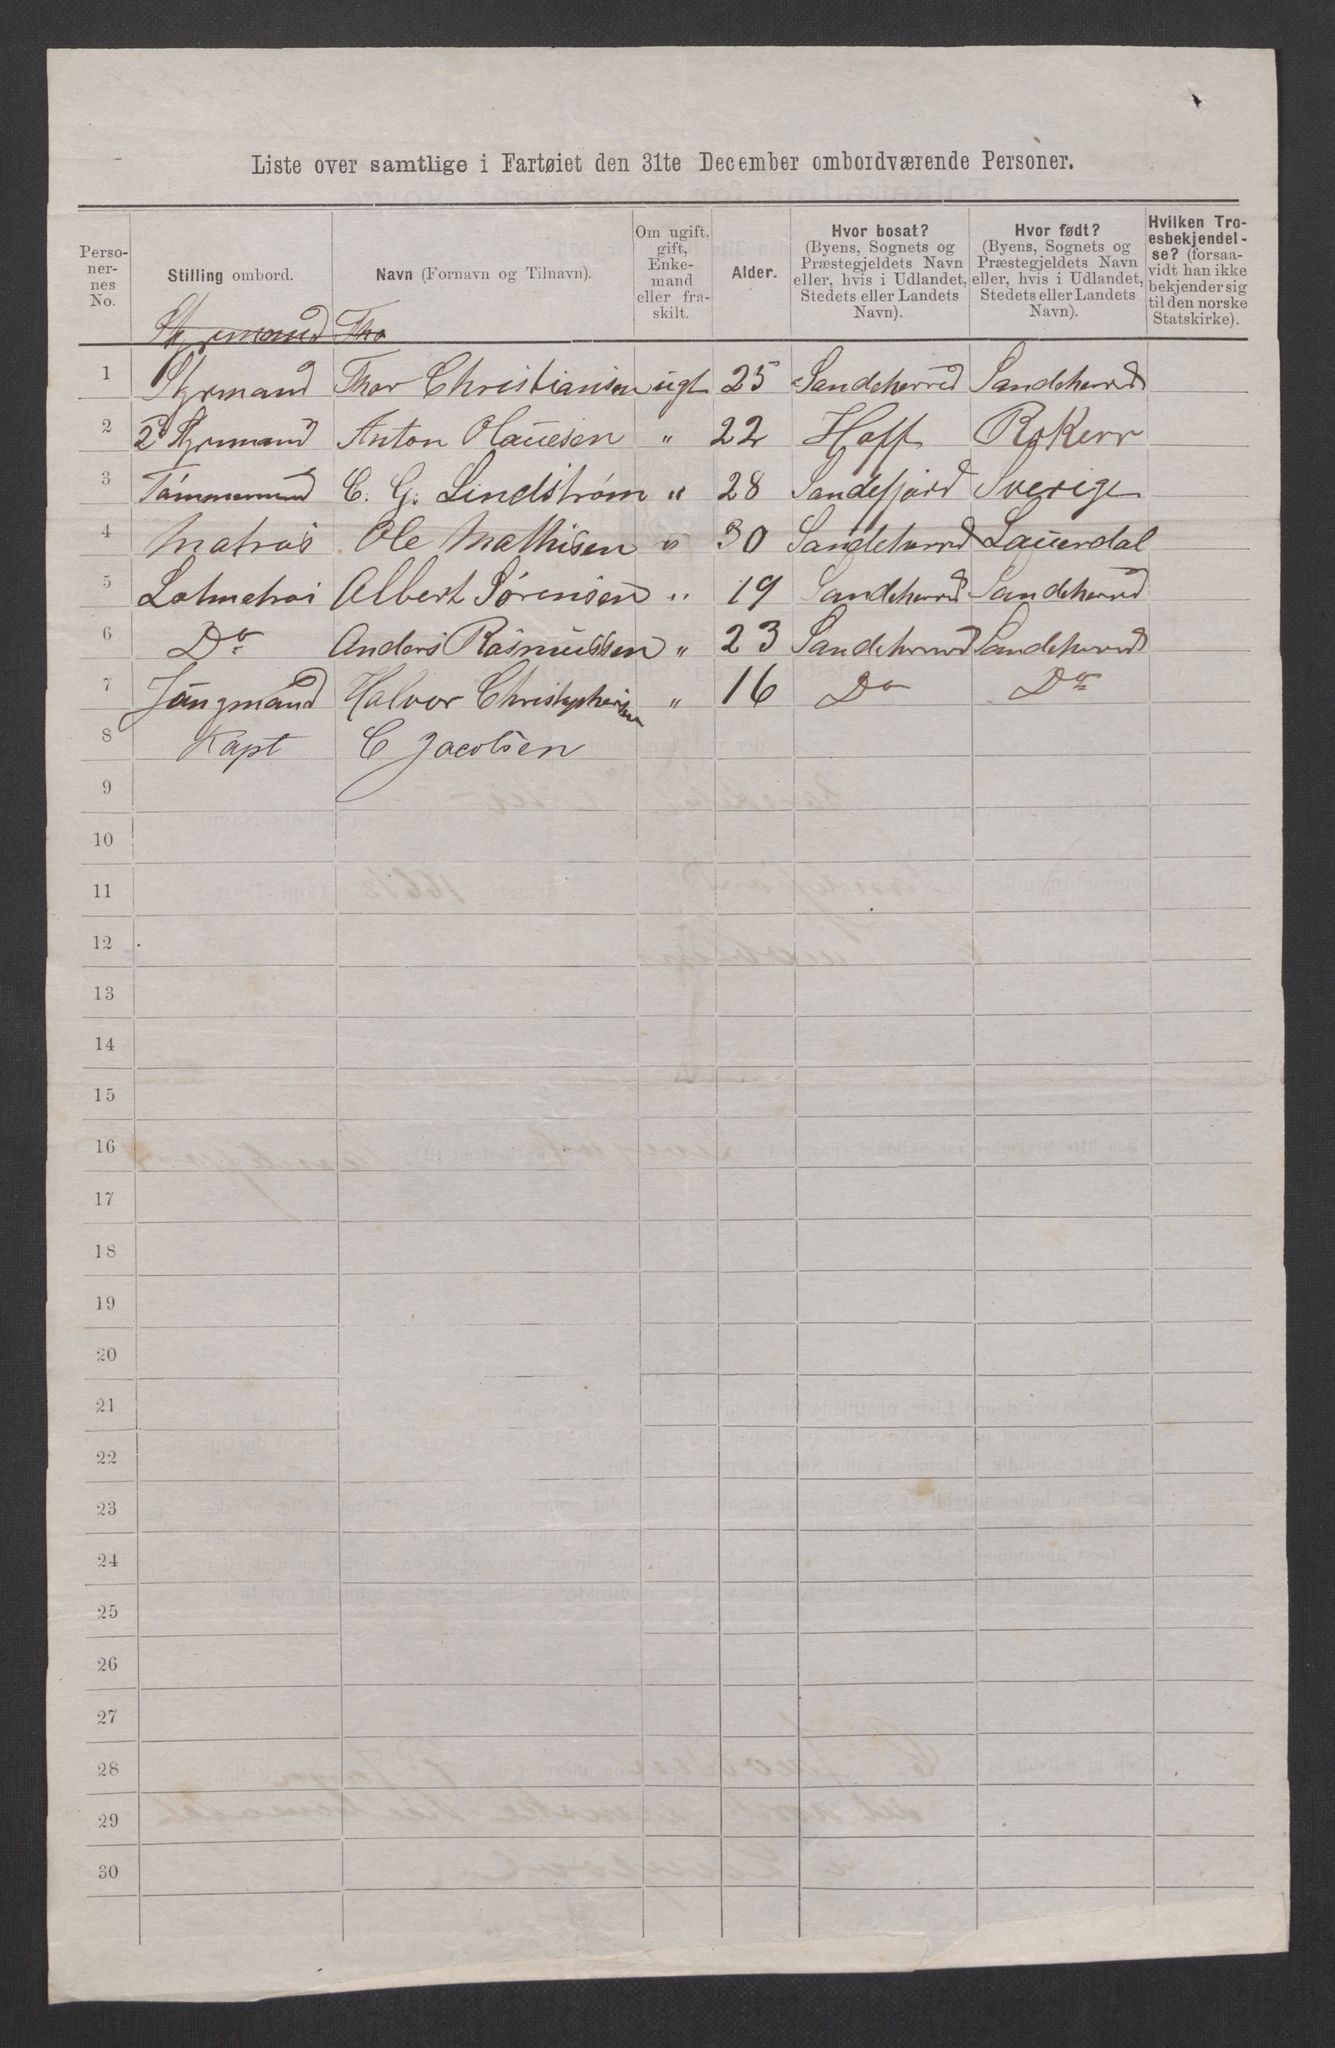 Liste over samtlige i Fartøiet den 31te December ombordværende Personer.
Personernes No. | Stilling ombord. | Navn (Fornavn og Tilnavn). | Om ugift, gift, Enkemand eller fraskilt. | Alder. | Hvor bosat? (Byens, Sognets og Præstegjeldets Navn eller, hvis i Udlandet, Stedets eller Landets Navn). | Hvor født? (Byens, Sognets og Præstegjeldets Navn eller, hvis i Udlandet, Stedets eller Landets Navn). | Hvilken Troesbekjendelse? (forsaavidt han ikke bekjender sig til den norske Statskirke).
Styrmand Tho
1 Styrmand Thor Christiansen ugt 25 Sandeherred Sandeherred
2 2d Styrmand Anton Olauesen " 22 Hoff Rokerr
3 Tømmermand C. G. Lindstrøm " 28 Sandefjord Sverige
4 Matros Ole Mathisen " 30 Sandeherred Lauerdal
5 Letmatros Albert Sørensen " 19 Sandeherred Sandeherred
6 Do Anders Rasmussen " 23 Sandeherred Sandeherred
7 Jungmand Halvor Christophersen " 16 Do Do
8 Kapt C Jacobsen
9
10
11
12
13
14
15
16
17
18
19
20
21
22
23
24
25
26
27
28
29
30